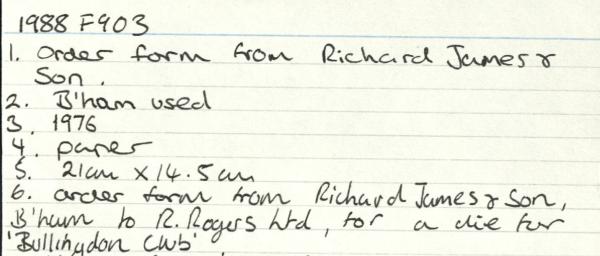 1988 F903
1. Order form from Richard James &
Son.
2. B'ham used
3. 1976
4. paper
5. 21cm x 14.5cm
6. order form from Richard James & Son,
B'ham to R. Rogers Ltd, for a die for
'Bullingdon Club'